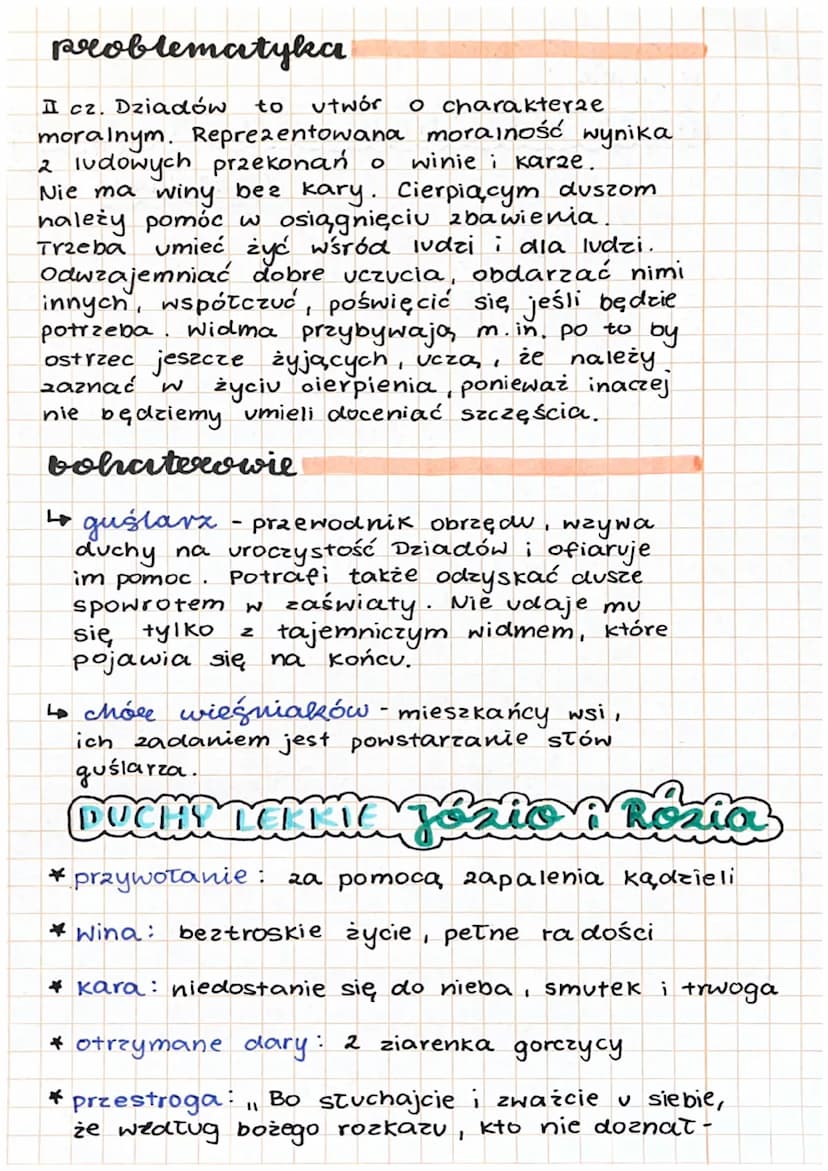 problematyka
II cz. Dziadów to utwór o charakterze
moralnym. Reprezentowana moralność wynika
z ludowych przekonań o winie i karze.
Nie ma winy bez kary. Cierpiącym duszom
należy pomóc w osiągnięciu zbawienia.
Trzeba umieć żyć wśród ludzi i dla ludzi.
Odwzajemniać dobre uczucia, obdarzać nimi
innych, współczuć, poświęcić się jeśli będzie
potrzeba. Widma przybywają m.in. po to by
ostrzec jeszcze żyjących, uczą, że należy
zaznać w życiu cierpienia, ponieważ inaczej
nie będziemy umieli doceniać szczęścia.
bohaterowie
↳ guślarz - przewodnik obrzędu, wzywa
duchy na uroczystość Dziadów i ofiaruje
im pomoc. Potrafi także odzyskać dusze
spowrotem w zaświaty. Nie udaje mu
się tylko z tajemniczym widmem, które
pojawia się na końcu.
↳ chór wieśniaków - mieszkańcy wsi,
ich zadaniem jest powstarzanie słów
guślarza.
DUCHY LEKKIE Józio i Rózia
* przywołanie: za pomocą zapalenia kądzieli
* wina: beztroskie życie, pełne radości
* kara: niedostanie się do nieba, smutek i trwoga
* otrzymane dary: 2 ziarenka gorczycy
* przestroga: „Bo słuchajcie i zważcie u siebie,
że według bożego rozkazu, kto nie doznał-